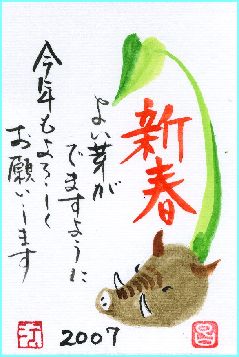 新春
よい芽が
でますように
今年もよろしく
お願いします
2007